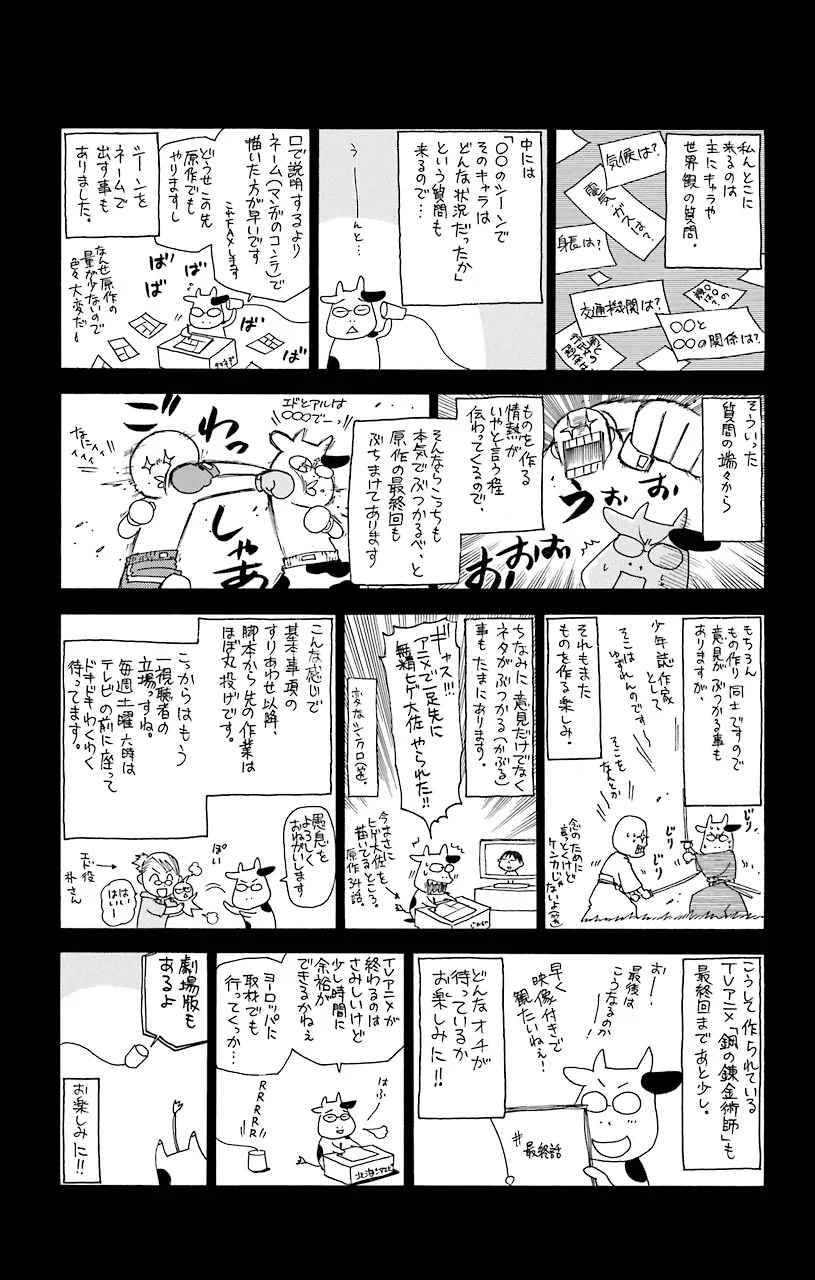 私んとこに
来るのは
主にキャラや
世界観の質問。
気候は?
電気・ガスは?
身長は?
交通機関は?
〇〇と
〇〇の関係は?
中には
「〇〇のシーンで
そのキャラは
どんな状況だったか」
という質問も
来るので…
うーー
んと…
口で説明するより
ネーム(マンガのコンテ)で
描いた方が早いです
今FAXします
どうせこの先
原作でも
やりますし
シーンを
ネームで
出す事も
ありました。
ばばっ
ばばっ
ばばっ
なんせ原作の
量が少ないので
色々大変だー
そういった
質問の端々から
うおぉ
おおぉぉ
ものを作る
情熱が
いやと言う程
伝わってくるので、
そんならこっちも
本気でぶつかるべ、と
原作の最終回も
ぶちまけてあります
エドとアルは
〇〇〇でーっ!!
ごわっ
しゃあ
なにィィィ
もちろん
もの作り同士ですので
意見がぶつかる事も
ありますが、
それもまた
ものを作る楽しみ。
少年誌作家
として
ゆずれんのです!
そこは
そこを
なんとか
じり
じり
じり
念のために
言っとくけど
ケンカじゃ
ないよ(笑)
ちなみに意見だけでなく
ネタがぶつかる(かぶる)
事もたまにあります。
ギャース!!!
アニメで一足先に
無精ヒゲ大佐
やられた!!
ホタなシンクロ(笑)。
今まさに
ヒゲ大佐を
描いてるところ。
原作34話。
こんな感じで
基本事項の
すりあわせ以降、
脚本から先の作業は
ほぼ丸投げです。
こっからはもう
一視聴者の
立場っすね。
毎週土曜六時は
テレビの前に座って
ドキドキわくわく
待ってます。
愚息を
よろしく
おねがいします
ぽい
エド役
朴さん
はい
はいー
こうして作られている
TVアニメ「鋼の錬金術師」も
最終回まであと少し。
おー!
最後は
こうなるのか
早く
映像付きで
観たいねぇ!
#最終話
どんなオチが
待っているか
お楽しみに!!
TVアニメが
終わるのは
さみしいけど
少し時間に
余裕が
できるかねえ
ヨーロッパに
取材でも
行ってくっか…
はふー
RRRRR
劇場版も
あるよ
お楽しみに!!